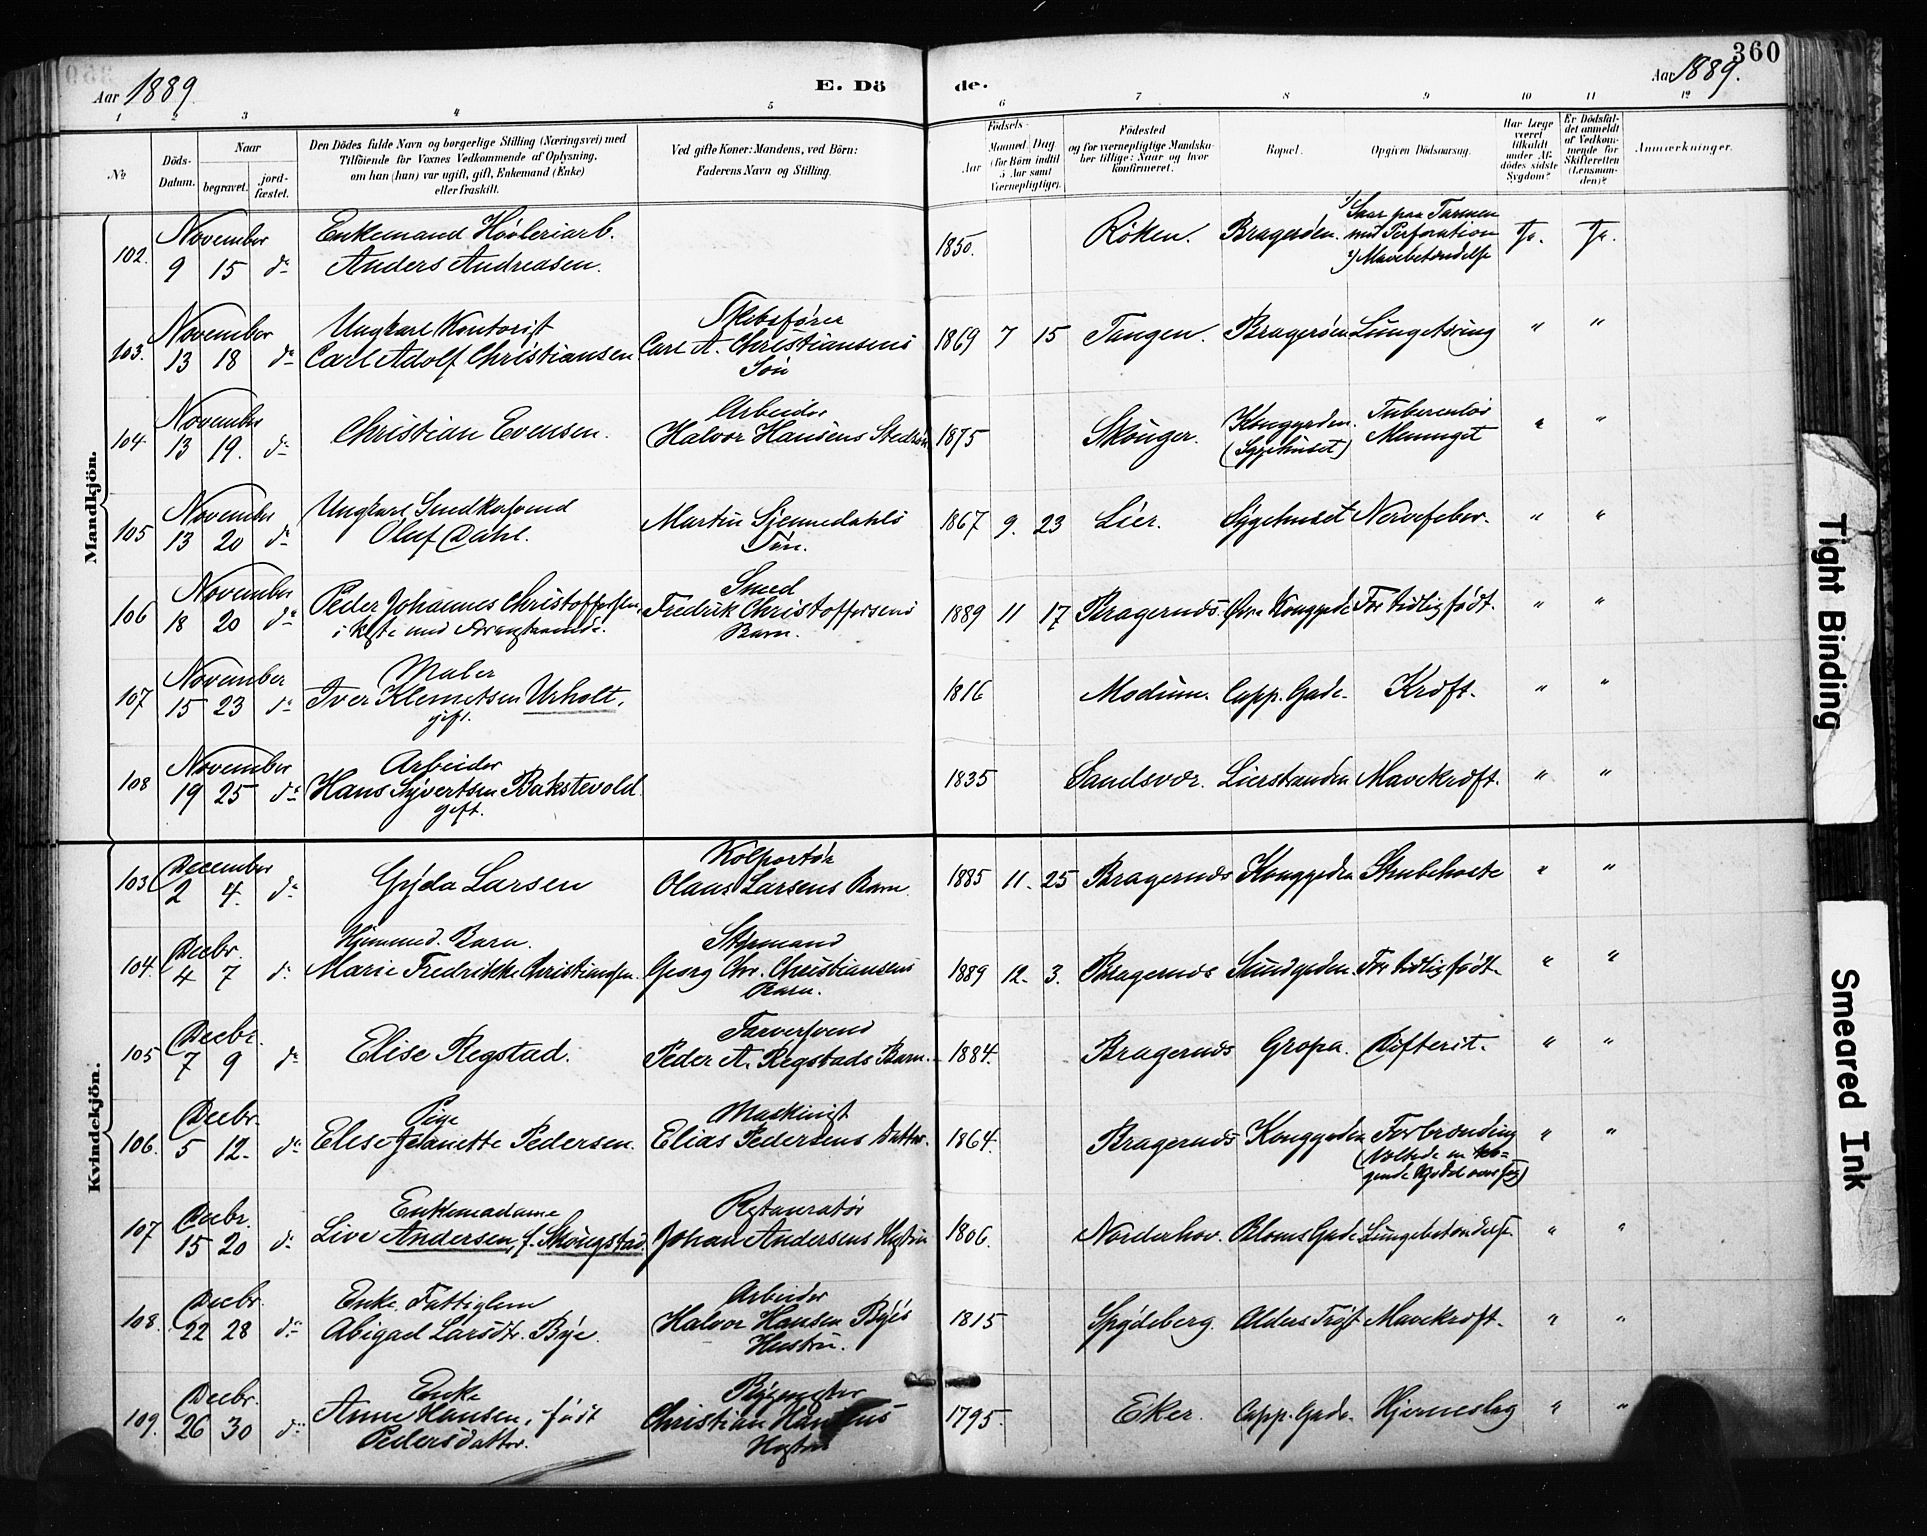 360
Aar 1889
E. Dö
de.
Aar 1889.
1 2 3 4 5 6 7 8 9 10 11 12
№
Döds-Datum.
Naar
begravet.
jord-fæstet.
Den Dödes fulde Navn og borgerlige Stilling (Næringsvei) med
Tilföiende for Voxnes Vedkommende af Oplysning,
om han (hun) var ugift, gift, Enkemand (Enke)
eller fraskilt.
Ved gifte Koner: Mandens, ved Börn:
Faderens Navn og Stilling.
Födsels-
Aar
Maaned Dag
(for Börn indtil
5 Aar samt
Værnepligtige).
Födested
og for værnepligtige Mandska-
ber tillige: Naar og hvor
konfirmeret.
Bopæl.
Opgiven Dödsaarsag.
Har Læge
været
tilkaldt
under Af-
dödes sidste
Sygdom?
Er Dödsfal-
det anmeldt
af Vedkom-
mende for
Skifteretten
(Lensman-
den)?
Anmærkninger.
Mandkjön.
102. November 9 15 do Enkemand Høvleriarb. Anders Andreasen. 1850. Røken. Bragerøen. 1) Saar paa Tarmen med Perforation 2) Mavebetændelse Ja. Ja.
103. November 13 18 do Ungkarl Kontorist Carl Adolf Christiansen Skibsfører Carl A. Christiansens Søn 1869 7 15 Tangen. Bragerøen Lungetæring " "
104. November 13 19. do Christian Evensen. Arbeider Halvor Hansens Stedsøn 1875 Skouger. Konggaden. (Sygehuset) Tuberculøs " "
105 November 13 20 do Ungkarl Smedkasvend Oluf Dahl. Martin Stennedahls Søn. 1867 9. 23 Lier. Sygehuset Nervefeber. " "
106 November 18 20 do Peder Johannes Christoffersen, Smed Fredrik Christoffersens Barn. 1889 11 17 Bragernæs. Øvre Konggade For tidlig født. " "
107 November 15 23 do Maler Iver Klemetsen Urholt, gift. 1816 Modum. Capp. Gade. Kræft. " "
108 November 19 25 do Arbeider Hans Syvertsen Bakstevold gift. 1835 Sandsvær. Lierstranden Mavekræft. " "
Kvindekjön.
103 December 2 4. do Gyda Larsen Kolportør Olaus Larsens Barn. 1885 11. 25 Bragernæs Konggaden Strubehoste " "
104. Decbr. 4 7 do Hjemmed. Barn. Marie Fredrikke Christiansen. Styrmand Georg Chr. Christiansens Barn. 1889 12. 3. Bragernæs Strandgaden. For tidlig født. " "
105 Decbr. 7 9 do Elise Regstad. Farversvend Peder A. Regstads Barn. 1884. Bragernæs Gropa. Difterit. " "
106. Decbr. 5 12. do Pige Elise Jeanette Pedersen. Maskinist Elias Pedersens Datter. 1864. Bragernæs Konggaden Forbrænding (Væltede en ko-gende Gryde over sig) " "
107 Decbr. 15 20 do Enkemadame Live Andersen, f. Skougstad. Restauratør Johan Andersens Hustru 1806. Norderhov. Bloms Gade Lungebetændelse. " "
108. Decbr. 22 28 do Enke. Fattiglem Abigael Larsdtr. Bye. Arbeider Halvor Hansen Byes Hustru. 1815 Spydeberg. Alders Trøst Mavekræft. " "
109. Decbr. 26 30 do Enke Anne Hansen, født Pedersdatter. Christian Hansens Hustru 1795. Eker. Capp. Gade. Hjerneslag " "
Tight Binding
Smeared Ink